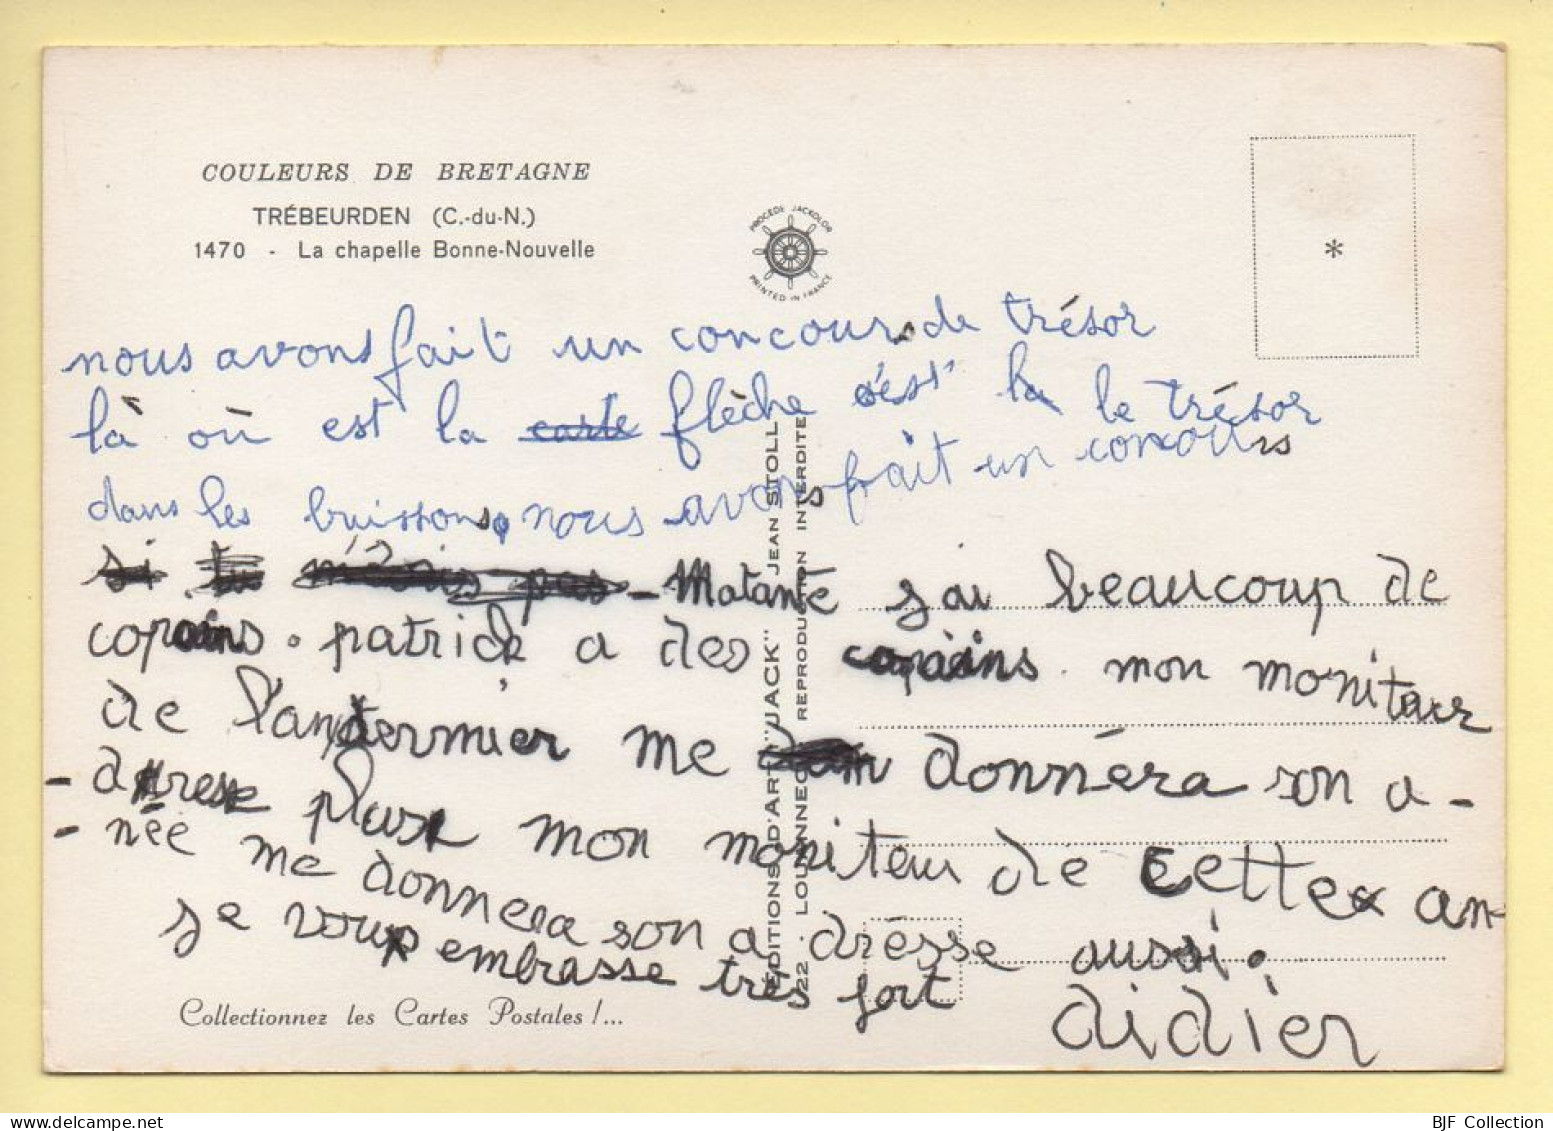 COULEURS DE BRETAGNE
TRÉBEURDEN (C.-du-N.)
1470 - La chapelle Bonne-Nouvelle
PROCÉDÉ JACKOLOR
PRINTED IN FRANCE
*
nous avons fait un concours de trésor
là où est la carte flèche c'est la le trésor
dans les buissons, nous avons fait un concours
si tu m'écris pas - Matante j'ai beaucoup de
copains. patrick a des copains. mon moniteur
de l'andermier me donnéra son a-
-dresse plus mon moniteur de cette an-
-née me donnera son adrésse aussi.
je vous embrasse très fort
didier
ÉDITIONS D'ART "JACK" JEAN STOLL
22 - LOUANNEC REPRODUCTION INTERDITE
Collectionnez les Cartes Postales !...
BJF Collection